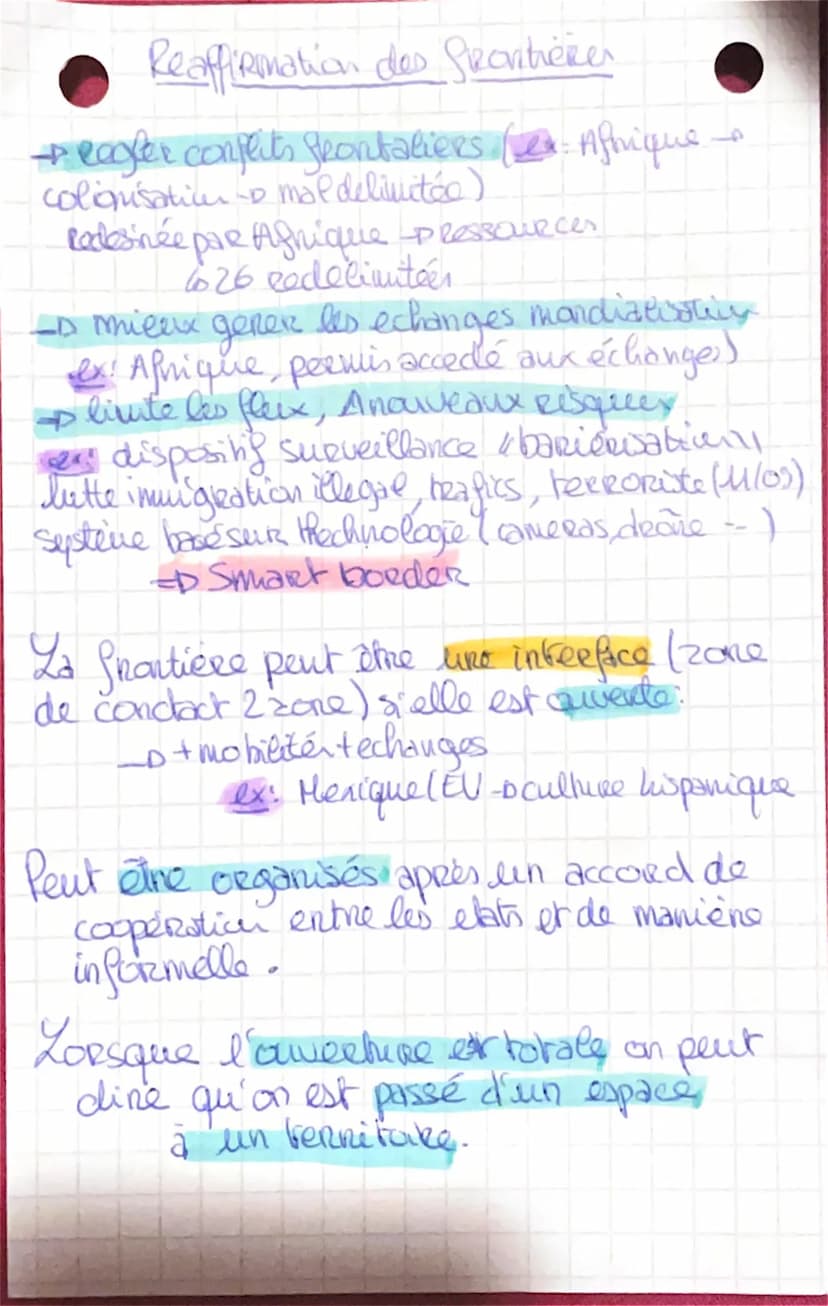 Reaffirmation des frontières
→ regler conflits frontaliers (ex: Afrique →
colonisation → mal delimitée)
redesinée par Afrique → ressources
↳ 26 redelimitées
→ mieux gerer les echanges mondialisation
ex: Afrique, permis accedé aux échanges)
→ limite les flux, nouveaux risques
ex: dispositif surveillance "bariérisation"
lutte immigration illegale, trafics, terroriste (11/09)
système basé sur technologie (cameras, drône --)
⇒ Smart border
La frontière peut être une interface (zone
de contact 2 zone) si elle est ouverte:
→ + mobilités + echanges
ex: Mexique/EU → culture hispanique
Peut être organisés après un accord de
coopération entre les etats et de manière
informelle.
Lorsque l'ouverture est totale on peut
dire qu'on est passé d'un espace
à un territoire.